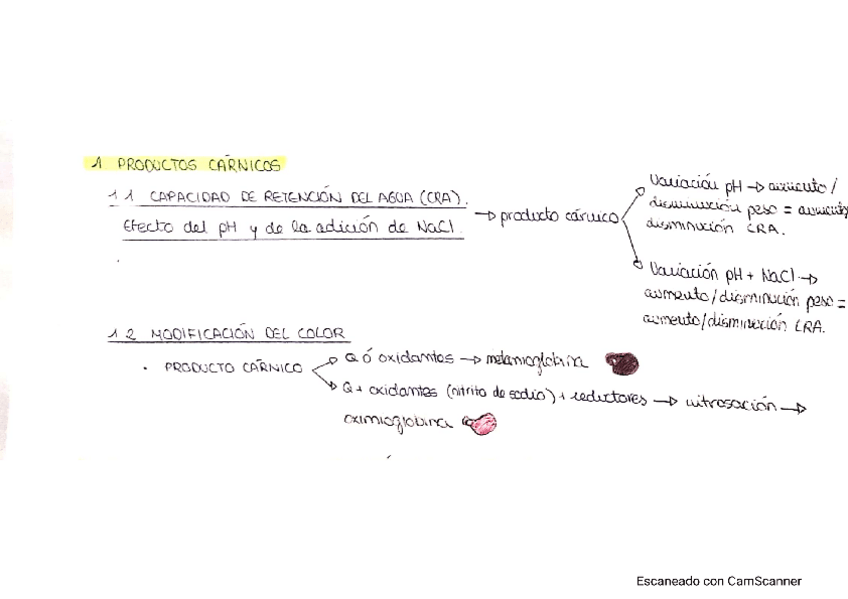 1 PRODUCTOS CÁRNICOS
1.1 CAPACIDAD DE RETENCIÓN DEL AGUA (CRA).
Efecto del pH y de la adición de NaCl.
→ producto cárnico
Variación pH → aumento /
disminución peso = aumento/
disminución CRA.
Variación pH + NaCl →
aumento/disminución peso =
aumento/disminución CRA.
1.2 MODIFICACIÓN DEL COLOR
· PRODUCTO CÁRNICO
Q ó oxidantes → metamioglobina
Q + oxidantes (nitrito de sodio) + reductores → nitrosación →
oximioglobina
Escaneado con CamScanner